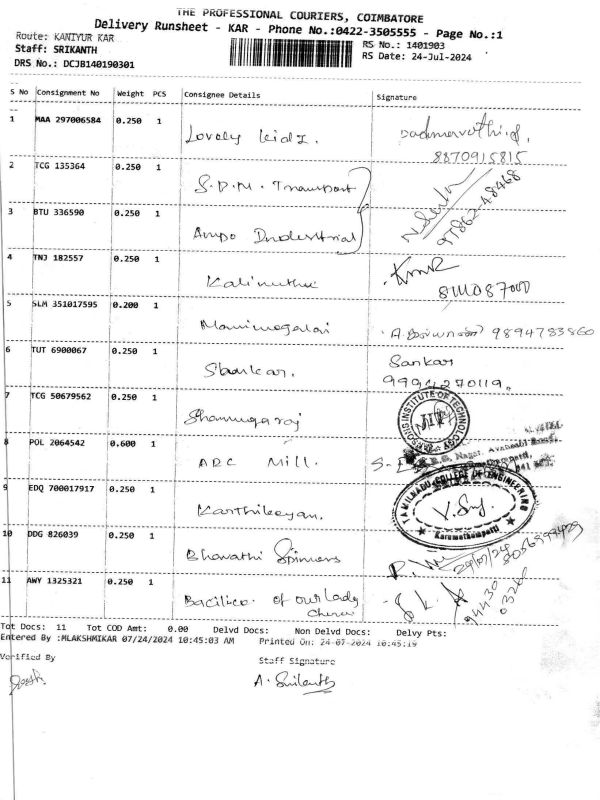 THE PROFESSIONAL COURIERS, COIMBATORE
Delivery Runsheet - KAR - Phone No.:0422-3505555 - Page No.:1
Route: KANIYUR KAR
RS No.: 1401903
Staff: SRIKANTH
RS Date: 24-Jul-2024
DRS No.: DCJB140190301
S No Consignment No Weight PCS Consignee Details Signature
1 MAA 297006584 0.250 1
Lovely kidz.
8870915815
2 TCG 135364 0.250 1
S.D.M. Transport
97862-48468
3 BTU 336590 0.250 1
Ampo Industrial
4 TNJ 182557 0.250 1
Kalimuthu
5 SLM 351017595 0.200 1
Manimegalai 9894783860
6 TUT 6900067 0.250 1
Sankar
Sankar. 9994270119.
7 TCG 50679562 0.250 1
Shanmugaraj
INSTITUTE OF TECHNOLOGY
8 POL 2064542 0.600 1
ADC Mill.
9 EDQ 700017917 0.250 1
Karthikeyan.
TAMILNADU COLLEGE OF ENGINEERING
Karumathampatti
10 DDG 826039 0.250 1
Bharathi Spinners
24/07/24
11 AWY 1325321 0.250 1
Bacilica of our Lady
94430
03260
Tot Docs: 11 Tot COD Amt: 0.00 Delvd Docs: Non Delvd Docs: Delvy Pts:
Entered By :MLAKSHMIKAR 07/24/2024 10:45:03 AM Printed On: 24-07-2024 10:45:19
Verified By Staff Signature
A. Srikanth